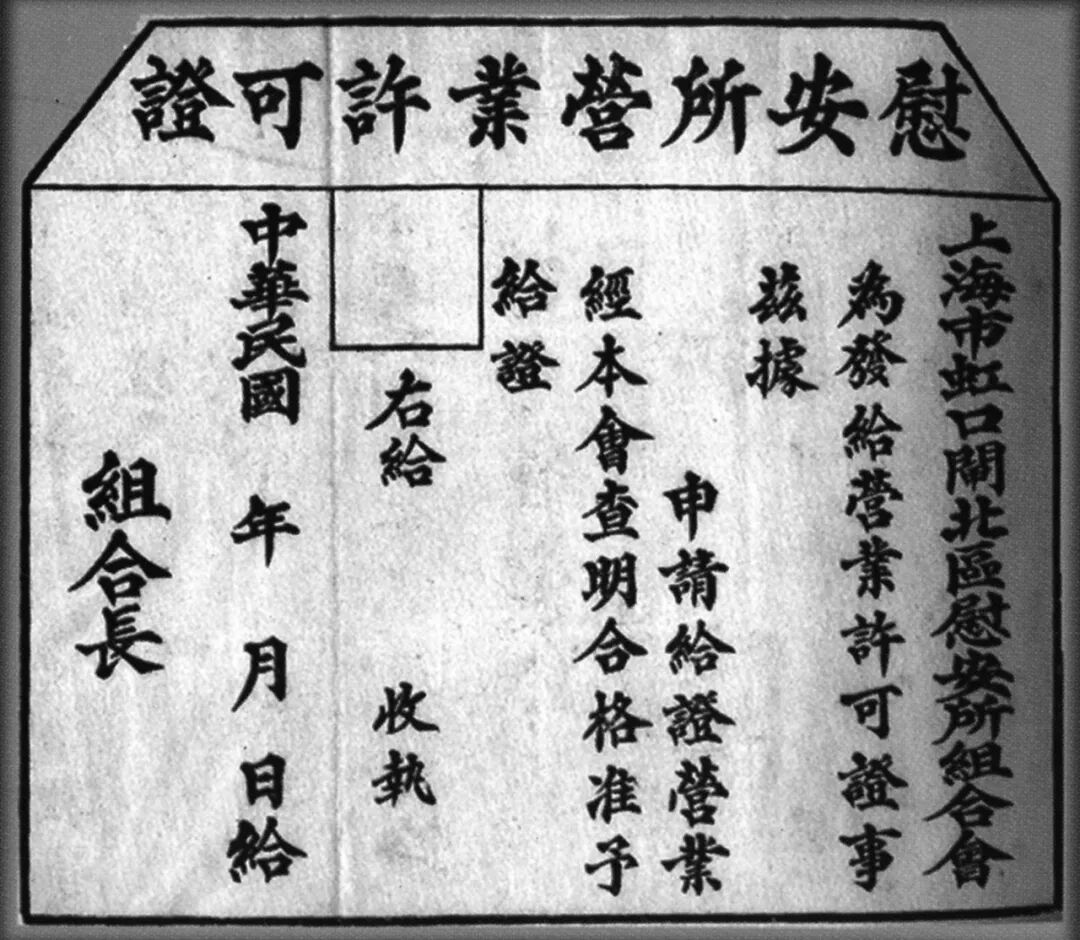 慰安所營業許可證
上海市虹口閘北區慰安所組合會
為發給營業許可證事
茲據
申請給證營業
經本會查明合格准予
給證
右給　收執
中華民國　年　月　日給
組合長